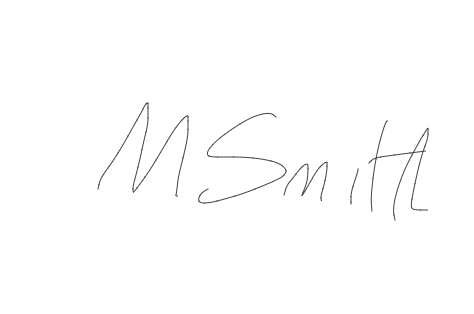 M Smith